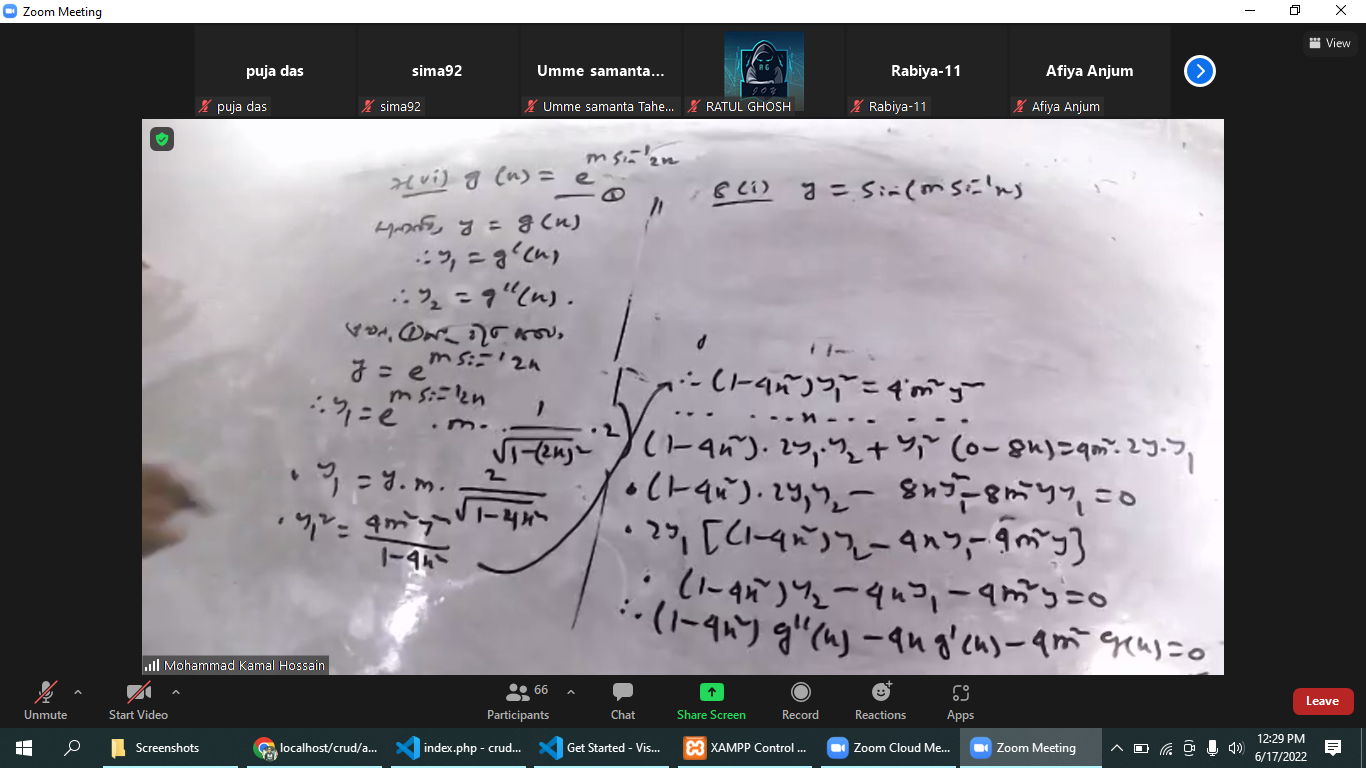 Zoom Meeting
View
puja das
sima92
Umme samanta...
Rabiya-11
Afiya Anjum
RG
JOY
puja das
sima92
Umme samanta Tahe...
RATUL GHOSH
Rabiya-11
Afiya Anjum
(vi) g(x) = e^{m sin⁻¹2x} ①
y = g(x)
∴ y₁ = g'(x)
∴ y₂ = g''(x).
y = e^{m sin⁻¹2x}
∴ y₁ = e^{m sin⁻¹2x} · m · 1/√(1-(2x)²) · 2
· y₁ = y·m· 2/√(1-4x²)
· y₁² = 4m²y²/(1-4x²)
8(i) y = sin(m sin⁻¹x)
∴ (1-4x²)y₁² = 4m²y²
(1-4x²)·2y₁·y₂ + y₁²(0-8x) = 4m²·2y·y₁
· (1-4x²)·2y₁y₂ - 8xy₁² - 8m²yy₁ = 0
· 2y₁[(1-4x²)y₂ - 4xy₁ - 4m²y}
· (1-4x²)y₂ - 4xy₁ - 4m²y = 0
∴ (1-4x²)g''(x) - 4xg'(x) - 4m²g(x) = 0
Mohammad Kamal Hossain
Unmute
Start Video
66
Participants
Chat
Share Screen
Record
Reactions
Apps
Leave
Screenshots
localhost/crud/a...
index.php - crud...
Get Started - Vis...
XAMPP Control ...
Zoom Cloud Me...
Zoom Meeting
12:29 PM
6/17/2022